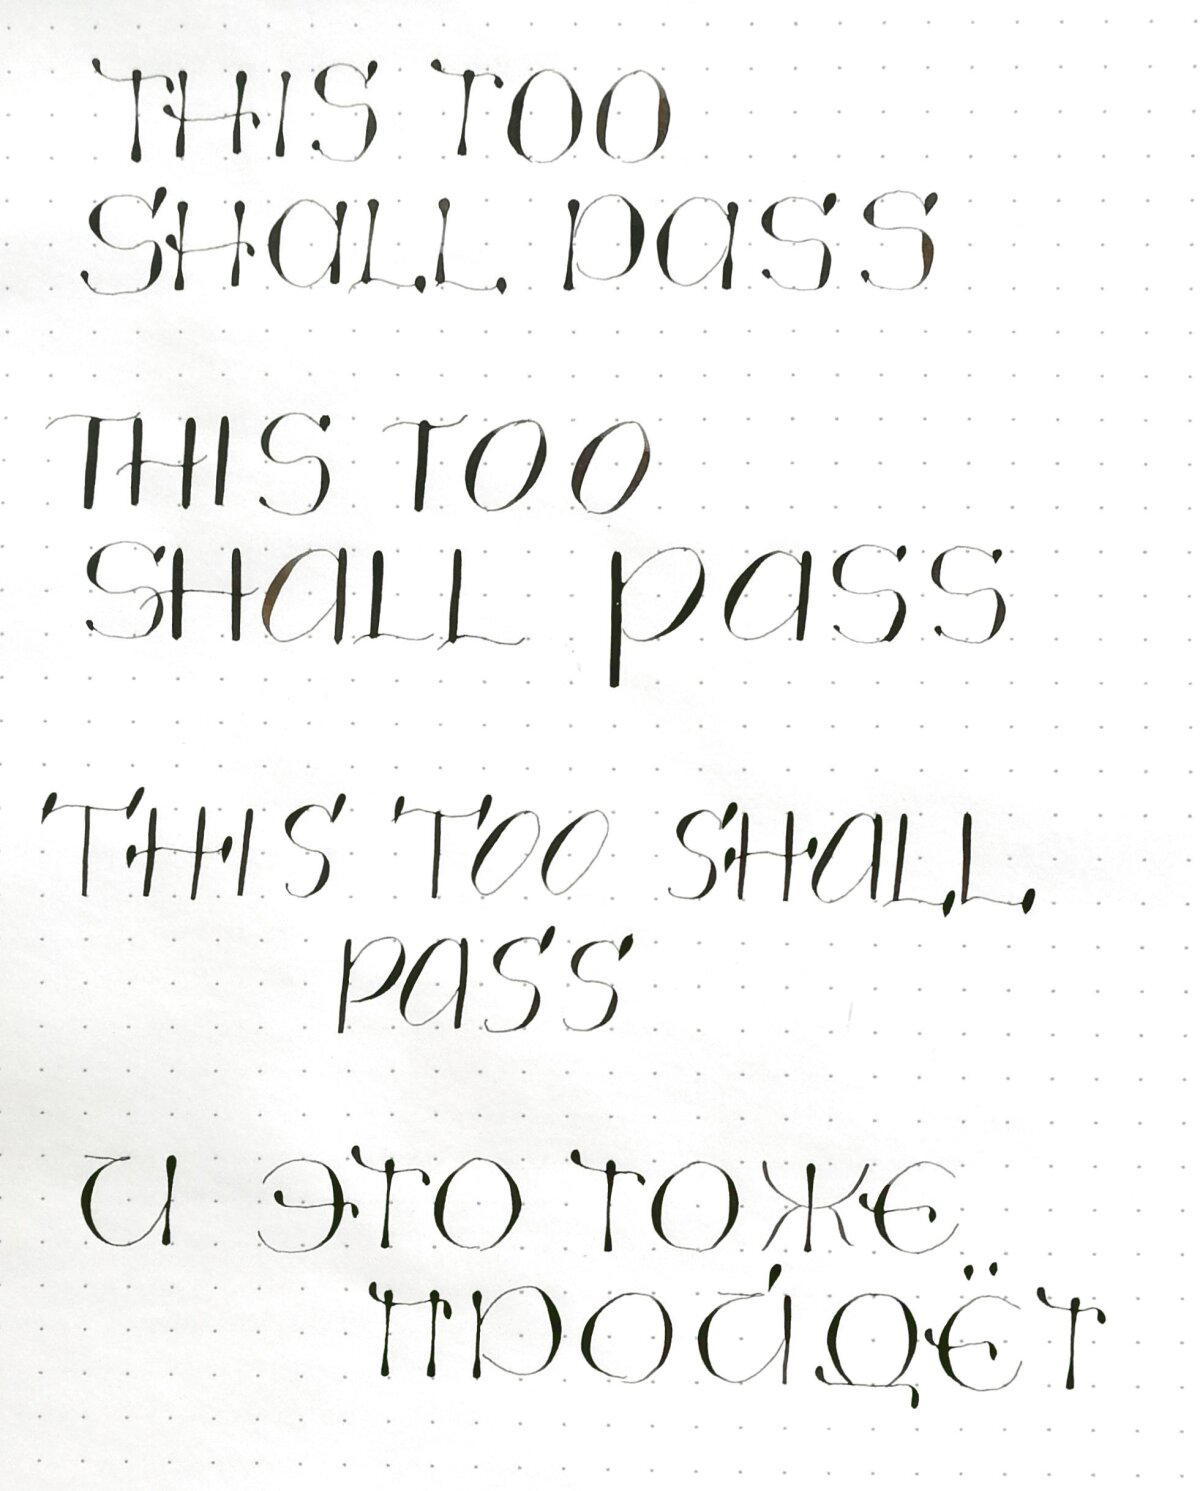 THIS TOO
SHALL PASS
THIS TOO
SHALL PASS
THIS TOO SHALL
PASS
И ЭТО ТОЖЕ
ПРОЙДЁТ